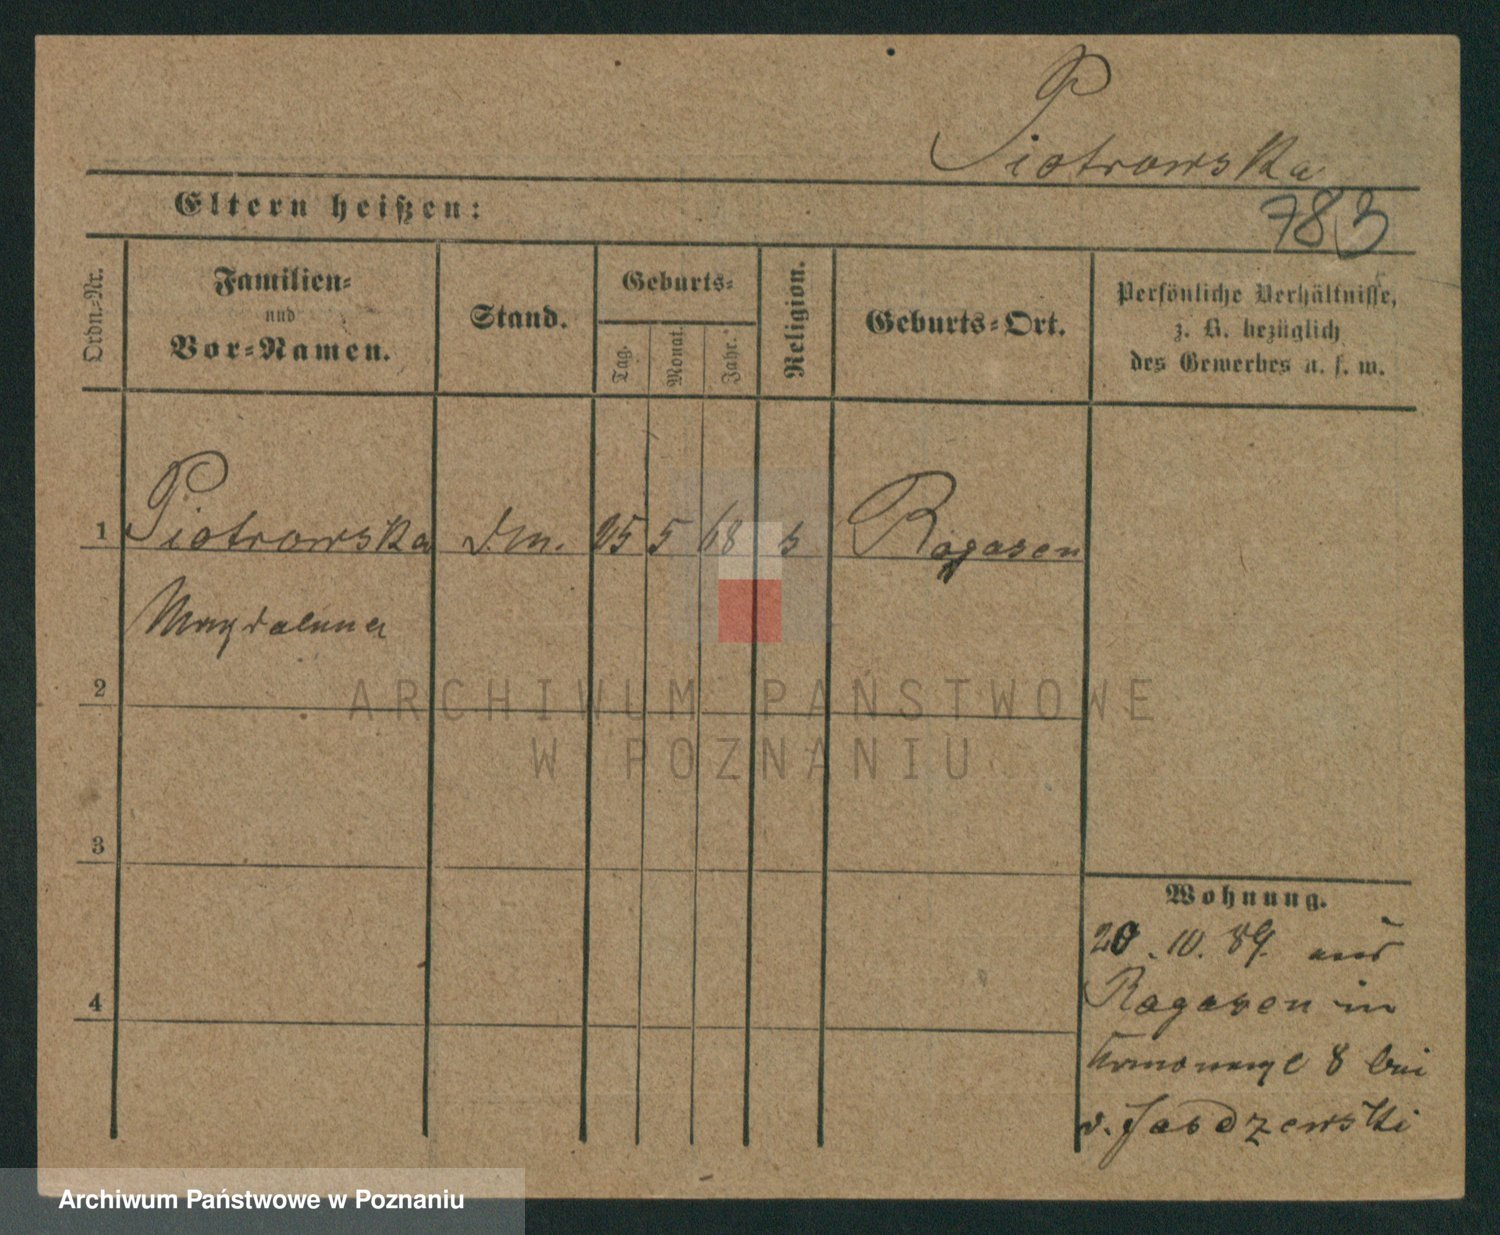 Piotrowska
Eltern heißen:
783
Ordn.-Nr.
Familien-
und
Vor-Namen.
Stand.
Geburts-
Tag.
Monat.
Jahr.
Religion.
Geburts-Ort.
Persönliche Verhältnisse,
z. B. bezüglich
des Gewerbes u. s. w.
1
Piotrowska
25 5 68
Rogasen
Magdalena
2
ARCHIWUM PAŃSTWOWE
W POZNANIU
3
Wohnung.
20. 10. 89. aus
Rogasen in
8 bei
v. Jasdzewski
4
Archiwum Państwowe w Poznaniu